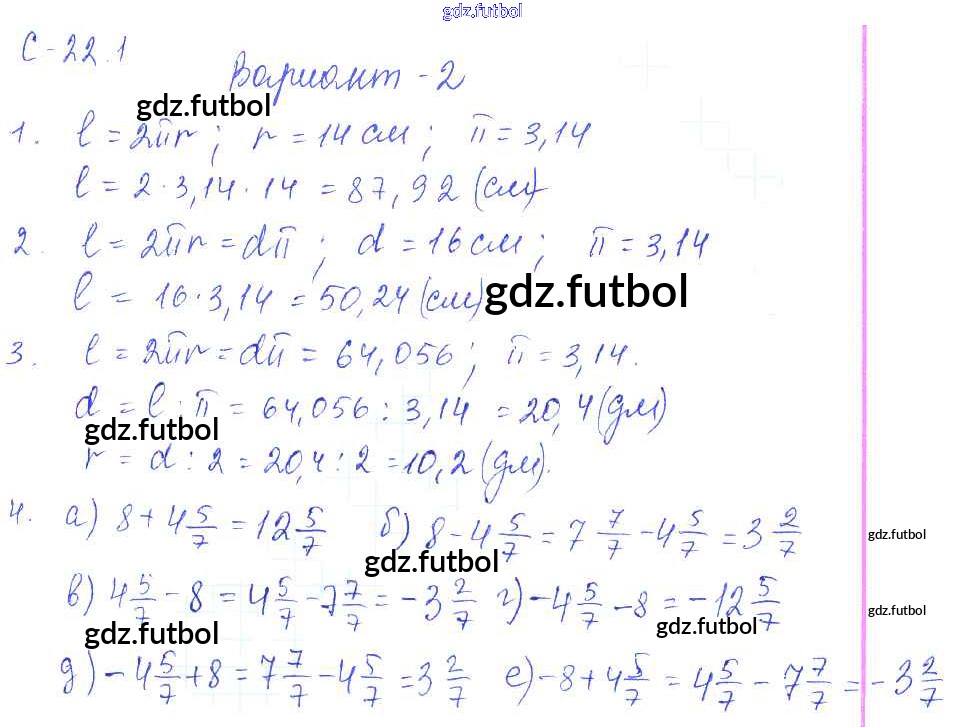 gdz.futbol
С-22.1
Вариант-2
gdz.futbol
1. l = 2πr; r = 14 см; π = 3,14
l = 2·3,14·14 = 87,92 (см)
2. l = 2πr = dπ; d = 16 см; π = 3,14
l = 16·3,14 = 50,24 (см) gdz.futbol
3. l = 2πr = dπ = 64,056; π = 3,14.
d = l : π = 64,056 : 3,14 = 20,4 (дм)
gdz.futbol
r = d : 2 = 20,4 : 2 = 10,2 (дм).
4. а) 8 + 4 5/7 = 12 5/7 б) 8 - 4 5/7 = 7 7/7 - 4 5/7 = 3 2/7
gdz.futbol
gdz.futbol
в) 4 5/7 - 8 = 4 5/7 - 7 7/7 = -3 2/7 г) -4 5/7 - 8 = -12 5/7
gdz.futbol
gdz.futbol
gdz.futbol
д) -4 5/7 + 8 = 7 7/7 - 4 5/7 = 3 2/7 е) -8 + 4 5/7 = 4 5/7 - 7 7/7 = -3 2/7